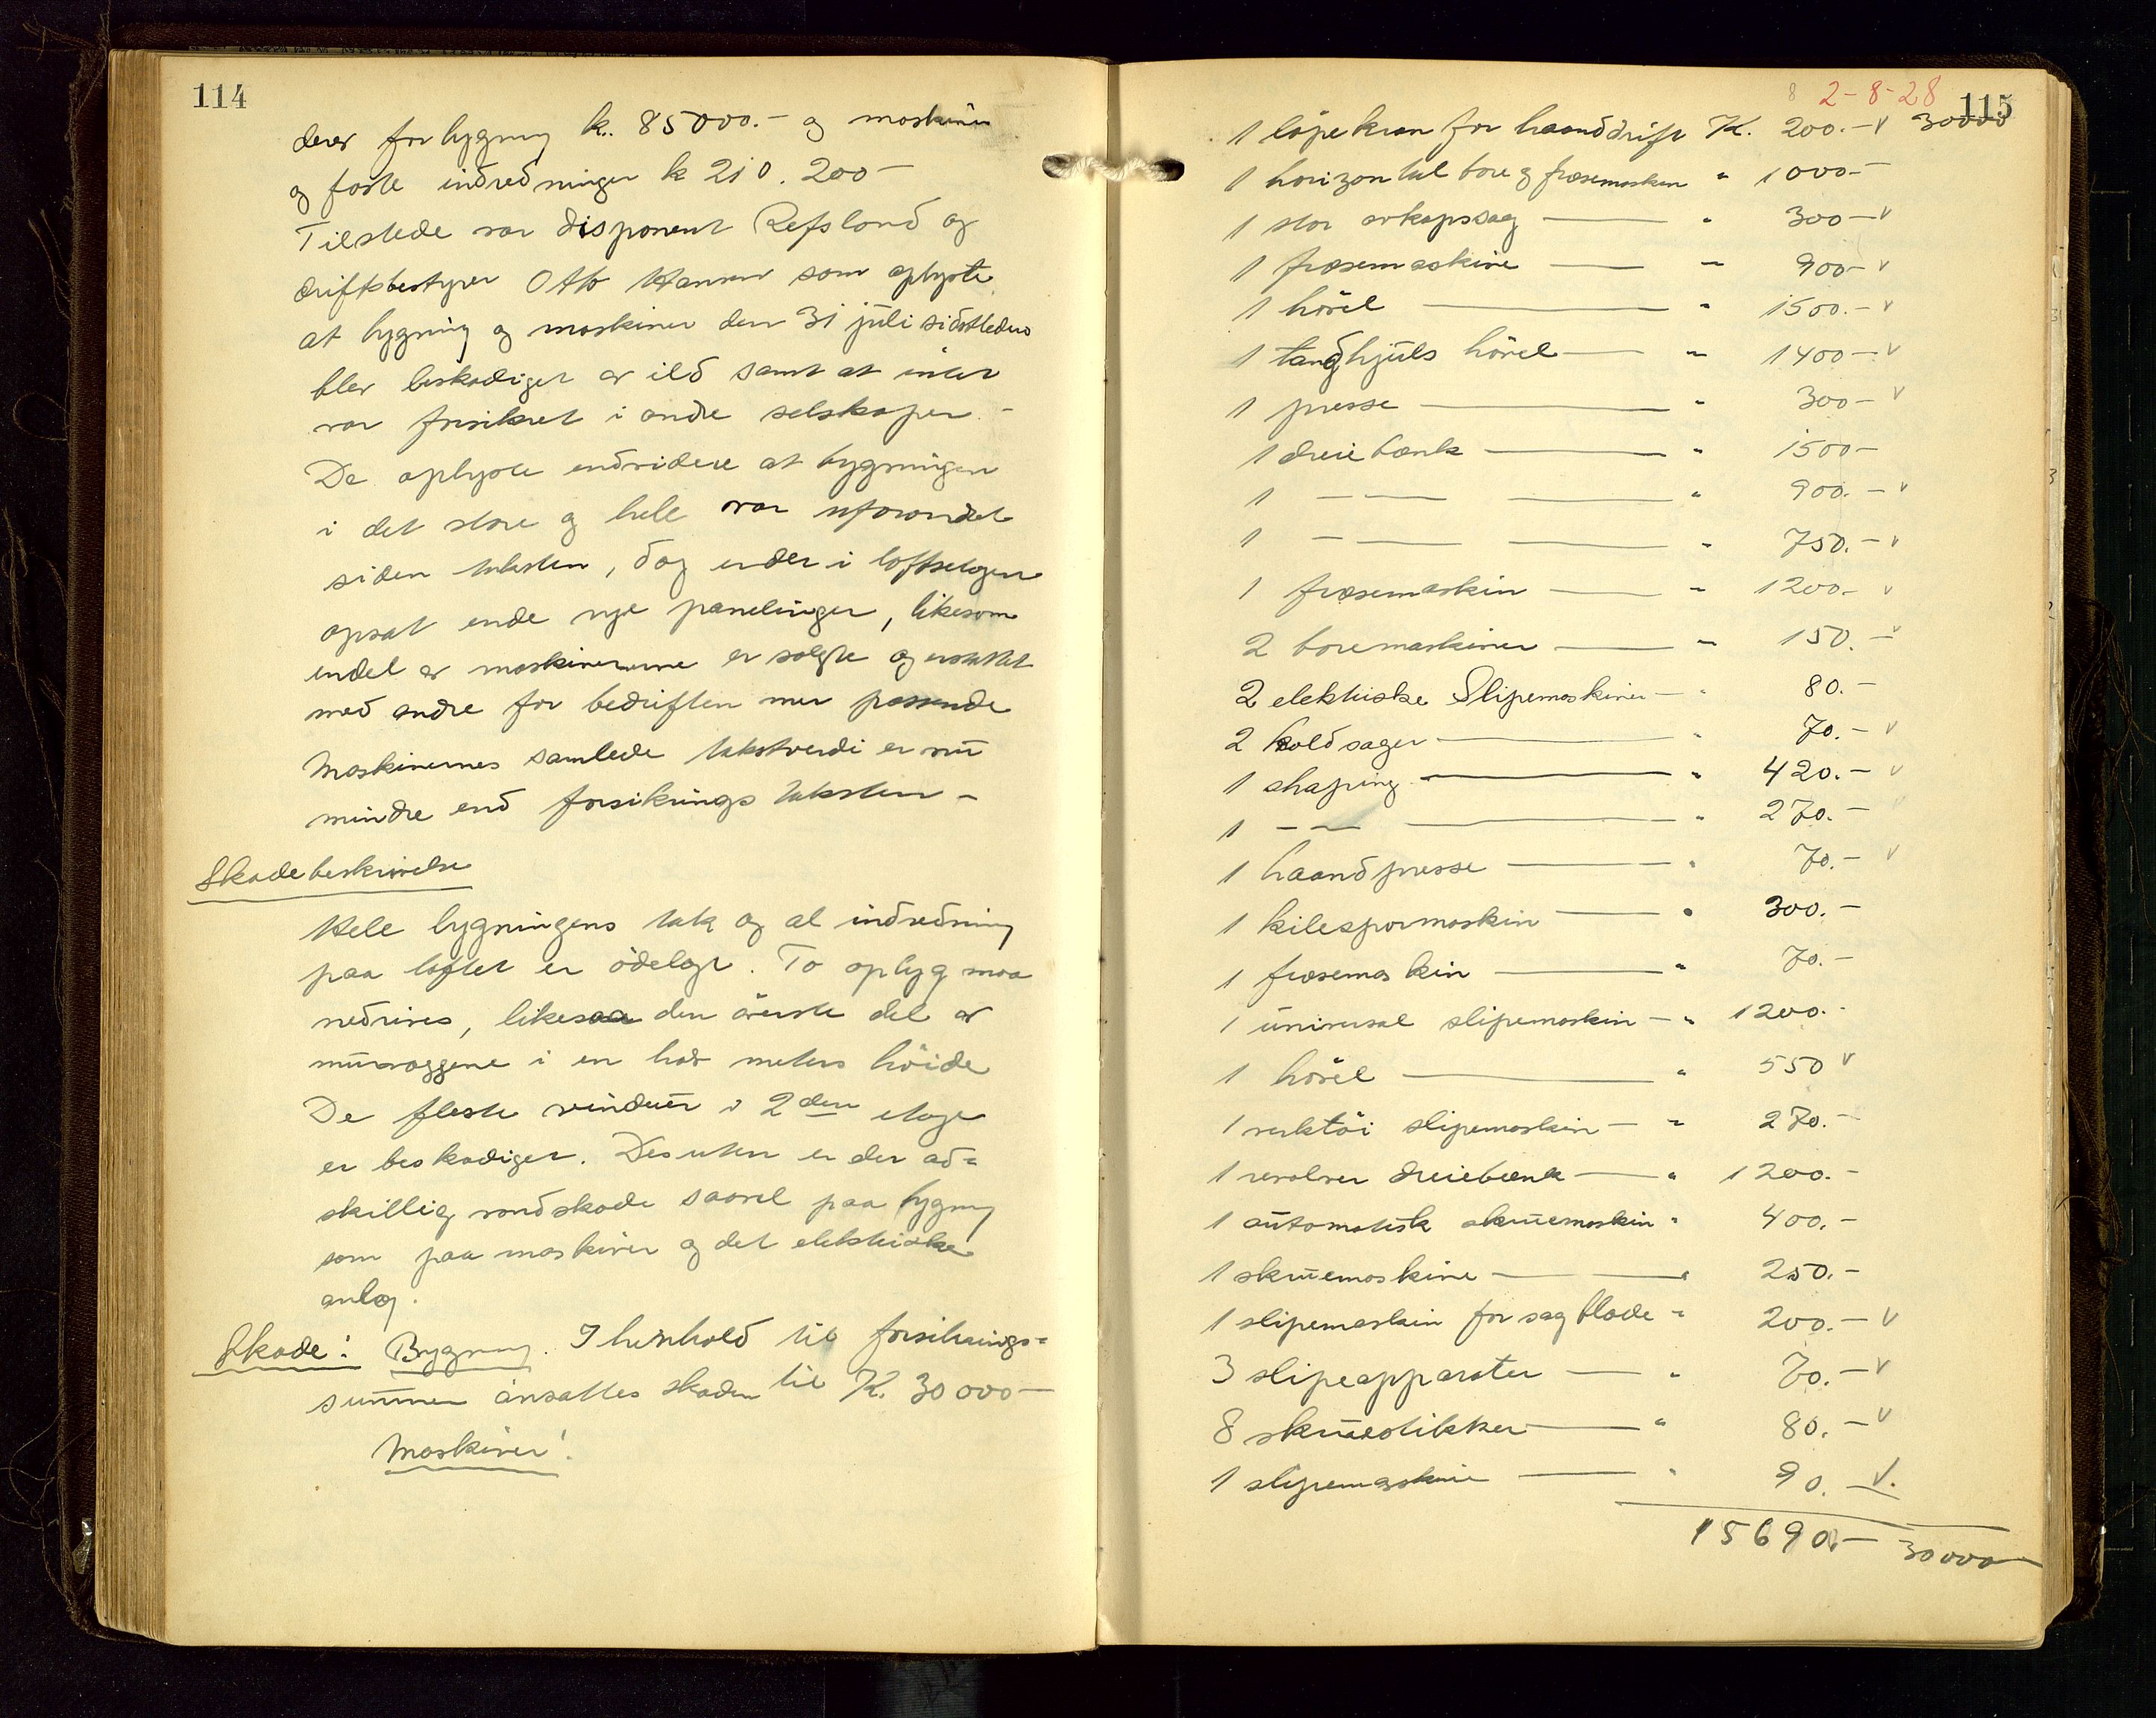 114
derer for bygning k. 85000.- og maskiner
og faste indredninger k 210.200-
Tilstede var disponent Refsland og
driftsbestyrer Otto Hanner som oplyste
at bygning og maskiner den 31 juli sidstleden
blev beskadiget av ild samt at intet
var forsikret i andre selskaper.-
De oplyste endvidere at bygningen
i det store og hele var uforandret
siden taksten, dog er der i loftsetagen
opsat ende nye panelinger, likesom
endel av maskinererne er solgte og erstattet
med andre for bedriften mer passende
Maskinernes samlede takstverdi er nu
mindre end forsikrings taksten-
Skadebeskrivelse
Hele bygningens tak og al indredning
paa loftet er ödelagt. To oplyg maa
nedrives, likesaa den överste del av
murvæggene i en halv meters höide
De fleste vinduer i 2den etage
er beskadiget. Desuten er der ad=
skillig vandskade saavel paa bygning
som paa maskiner og det elektriske
anlæg.
Skade: Bygning. I henhold til forsikrings=
summen ansattes skaden til K. 30000-
Maskiner!
8 2-8-28 115
1 löpekran for haanddrift K. 200.- v 30000
1 horizontal bore og fræsemaskin " 1000-
1 stor avkapsag " 300- v
1 fræsemaskine " 900- v
1 hövel " 1500.- v
1 tandhjuls hövel " 1400- v
1 presse " 300- v
1 dreiebænk " 1500-
1 - - " 900.- v
1 - - " 750.- v
1 fræsemaskin " 1200- v
2 boremaskiner " 150.- v
2 elektriske Slipemaskiner " 80.-
2 koldsager " 70.- v
1 shaping " 420.- v
1 - - " 270.-
1 haandpresse " 70.- v
1 kilespormaskin " 300.-
1 fræsemaskin " 70.-
1 universal slipemaskin " 1200.-
1 hövel " 550 v
1 verktöi slipemaskin " 270.-
1 revolver dreiebænk " 1200.-
1 automatisk skruemaskin " 400.-
1 skruemaskine " 250.-
1 slipemaskin for sagblade " 200.- v
3 slipeapparater " 70.- v
8 skruestikker " 80.- v
1 slipemaskine " 90.- v.
15690.- 30000-